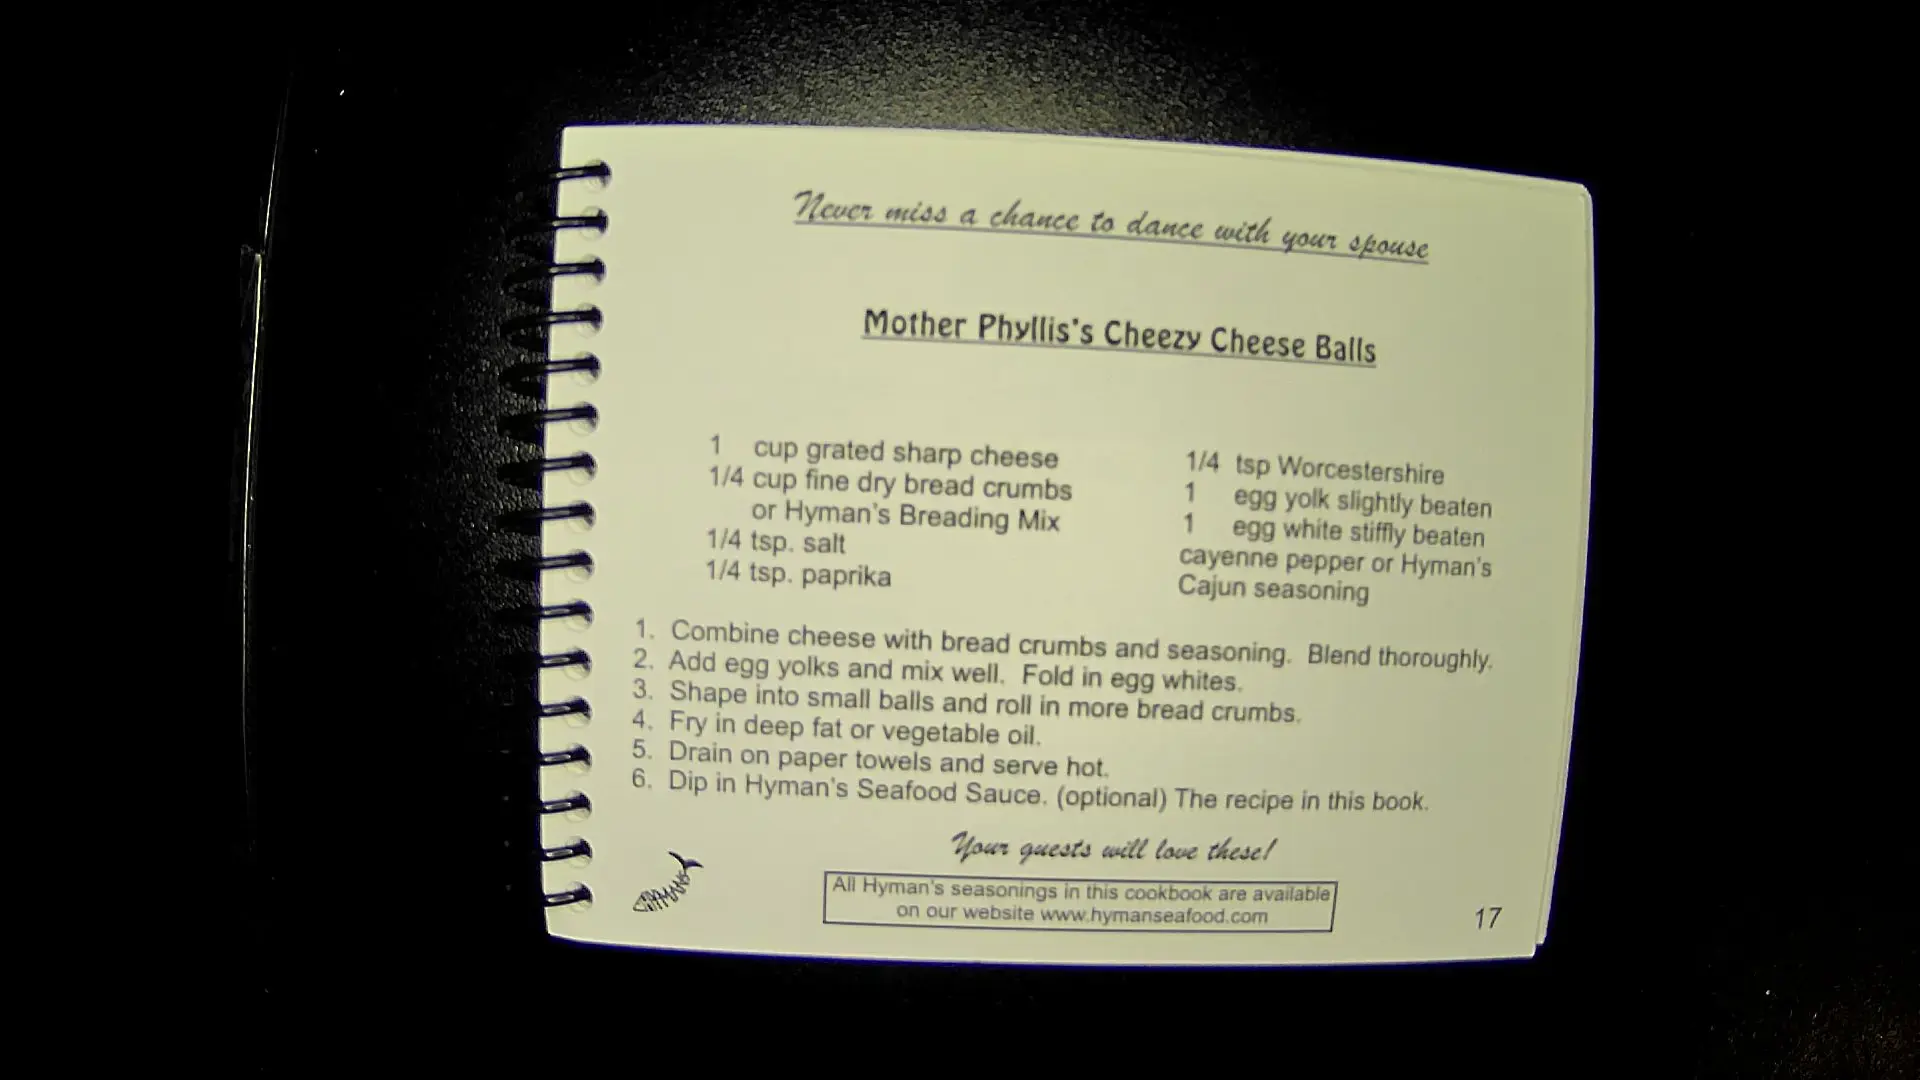 Never miss a chance to dance with your spouse
Mother Phyllis's Cheezy Cheese Balls
1 cup grated sharp cheese
1/4 cup fine dry bread crumbs
or Hyman's Breading Mix
1/4 tsp. salt
1/4 tsp. paprika
1/4 tsp Worcestershire
1 egg yolk slightly beaten
1 egg white stiffly beaten
cayenne pepper or Hyman's
Cajun seasoning
1. Combine cheese with bread crumbs and seasoning. Blend thoroughly.
2. Add egg yolks and mix well. Fold in egg whites.
3. Shape into small balls and roll in more bread crumbs.
4. Fry in deep fat or vegetable oil.
5. Drain on paper towels and serve hot.
6. Dip in Hyman's Seafood Sauce. (optional) The recipe in this book.
Your guests will love these!
HYMANS
All Hyman's seasonings in this cookbook are available
on our website www.hymanseafood.com
17